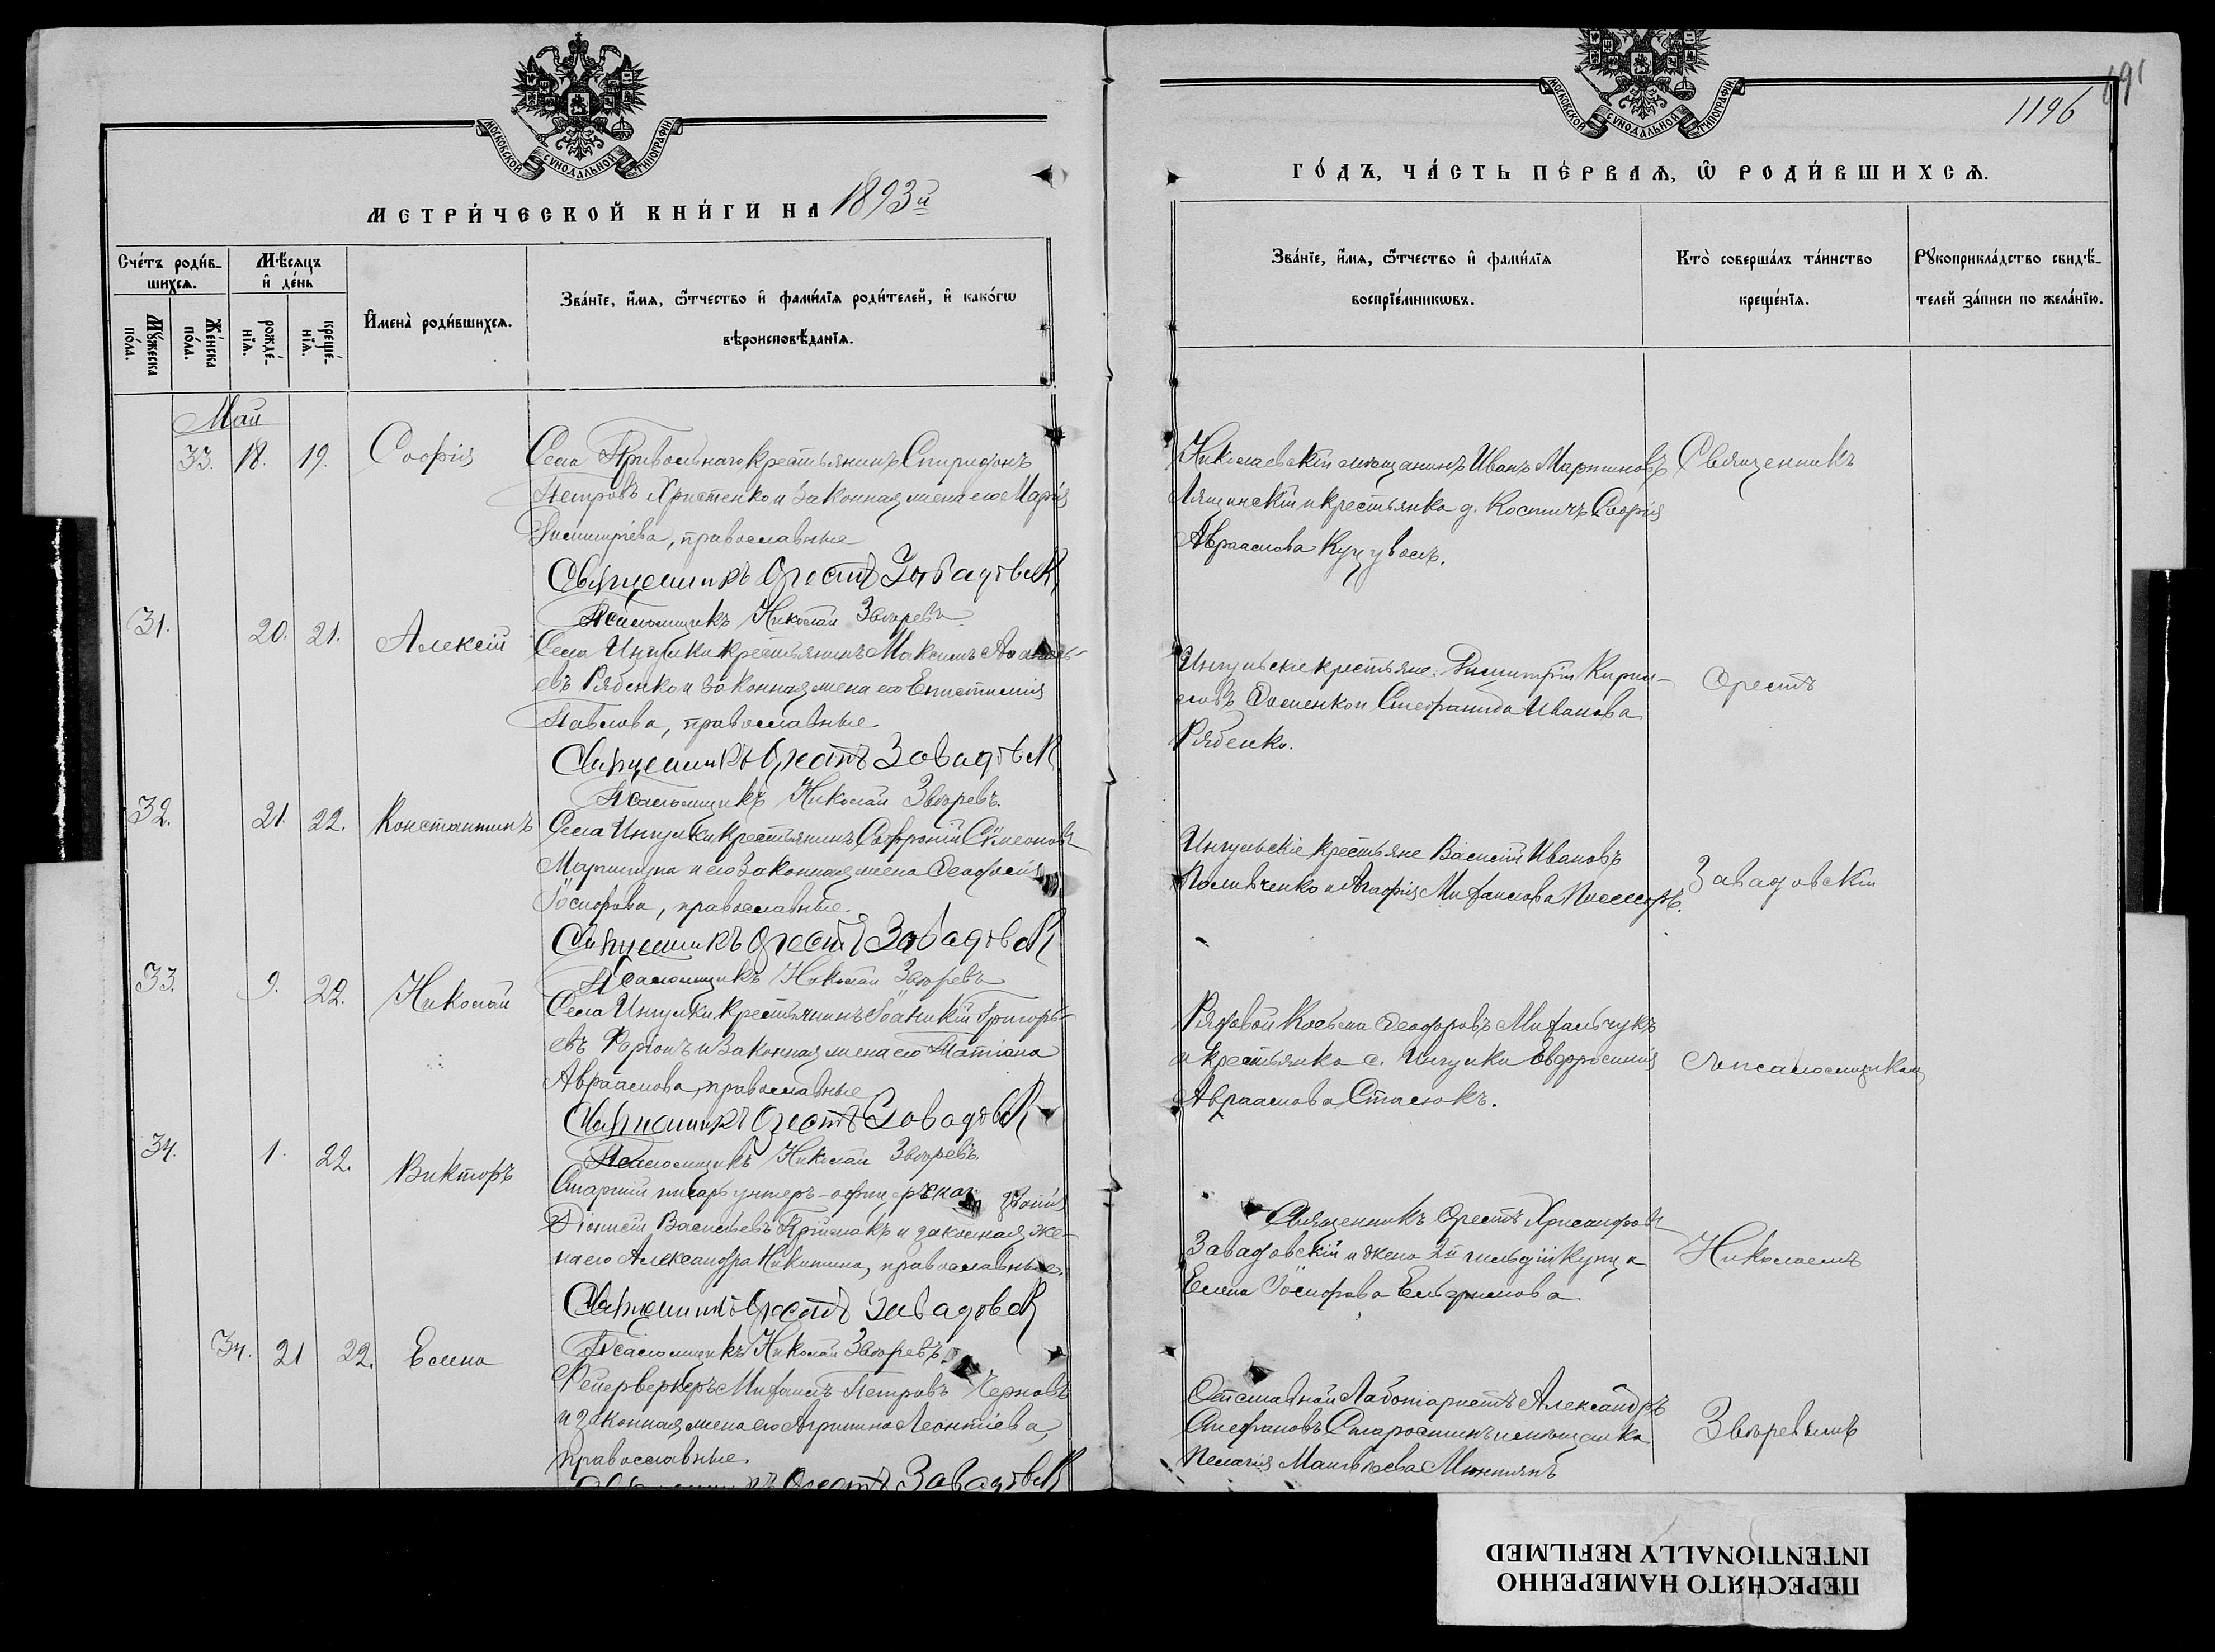 МОСКОВСКОЙ СѴНОДАЛЬНОЙ ТИПОГРАФІИ
МЕТРИ́ЧЕСКОЙ КНИ́ГИ НА 1893й
Сче́тъ роди́в-
шихсѧ.
Мꙋ́жеска по́ла.
Же́нска по́ла.
Мѣ́сѧцъ
и҆ де́нь
рожде́-
нїѧ.
креще́-
нїѧ.
И҆мена̀ роди́вшихсѧ.
Зва́нїе, и҆́мѧ, ѻ҆́тчество и҆ фами́лїѧ роди́телей, и҆ како́гѡ
вѣроисповѣ́данїѧ.
Май
33. 18. 19. Софія
Села Привольнаго крестьянинъ Спиридонъ
Петровъ Христенко и законная жена его Марія
Димитріева, православные
Священникъ Орестъ Завадовскій
Псаломщикъ Николай Зворевъ
31. 20. 21. Алексій
Села Ингулки крестьянинъ Максимъ
евъ Рябенко и законная жена его Епистимія
Павлова, православные
Священникъ Орестъ Завадовскій
Псаломщикъ Николай Зворевъ.
32. 21. 22. Константинъ
Села Ингулки крестьянинъ Софроній Сѵмеоновъ
и его законная жена Ѳеодосія
Іосифова, православные.
Священникъ Орестъ Завадовскій
Псаломщикъ Николай Зворевъ
33. 9. 22. Николай
Села Ингулки крестьянинъ Іоаникій Григорь-
евъ и законная жена его Татіана
Авраамова, православные
Священникъ Орестъ Завадовскій
Псаломщикъ Николай Зворевъ.
34. 1. 22. Викторъ
Старшій писарь унтеръ-офицерскаго званія
Діонисій Васильевъ Пріймакъ и законная же-
на его Александра Никитина, православные.
Священникъ Орестъ Завадовскій
Псаломщикъ Николай Зворевъ.
34. 21 22. Елена
Фейерверкеръ Михаилъ Петровъ Черновъ
и законная жена его Агриппина Леонтіева,
православные.
Священникъ Орестъ Завадовскій
191
1196
МОСКОВСКОЙ СѴНОДАЛЬНОЙ ТИПОГРАФІИ
ГО́ДЪ, ЧА́СТЬ ПЕ́РВАѦ, Ѽ РОДИ́ВШИХСѦ.
Зва́нїе, и҆́мѧ, ѻ҆́тчество и҆ фами́лїѧ
воспрїе́мникѡвъ.
Кто̀ соверша́лъ та́инство
креще́нїѧ.
Рꙋкоприкла́дство свидѣ́-
телей за́писи по жела́нїю.
Николаевскій мѣщанинъ Иванъ Мартиновъ
Лящинскій и крестьянка д. Костичъ Софія
Авраамова Куцуволъ.
Священникъ
Ингульскіе крестьяне: Димитрій Кирил-
ловъ Доценко и Стефанида Иванова
Рябенко.
Орестъ
Ингульскіе крестьяне Василій Ивановъ
и Агафія Михаилова
Завадовскій
Рядовой Косьма Ѳеодоровъ Михальчукъ
и крестьянка с. Ингулки Евфросинія
Авраамова Стасюкъ.
съ псаломщикомъ
Священникъ Орестъ Хрисанфовъ
Завадовскій и жена 2й гильдіи купца
Елена Іосифова
Николаемъ
Отставной Александръ
Стефановъ Старостинъ и мѣщанка
Пелагія
Зворевымъ
ПЕРЕСНЯТО НАМЕРЕННО
INTENTIONALLY REFILMED